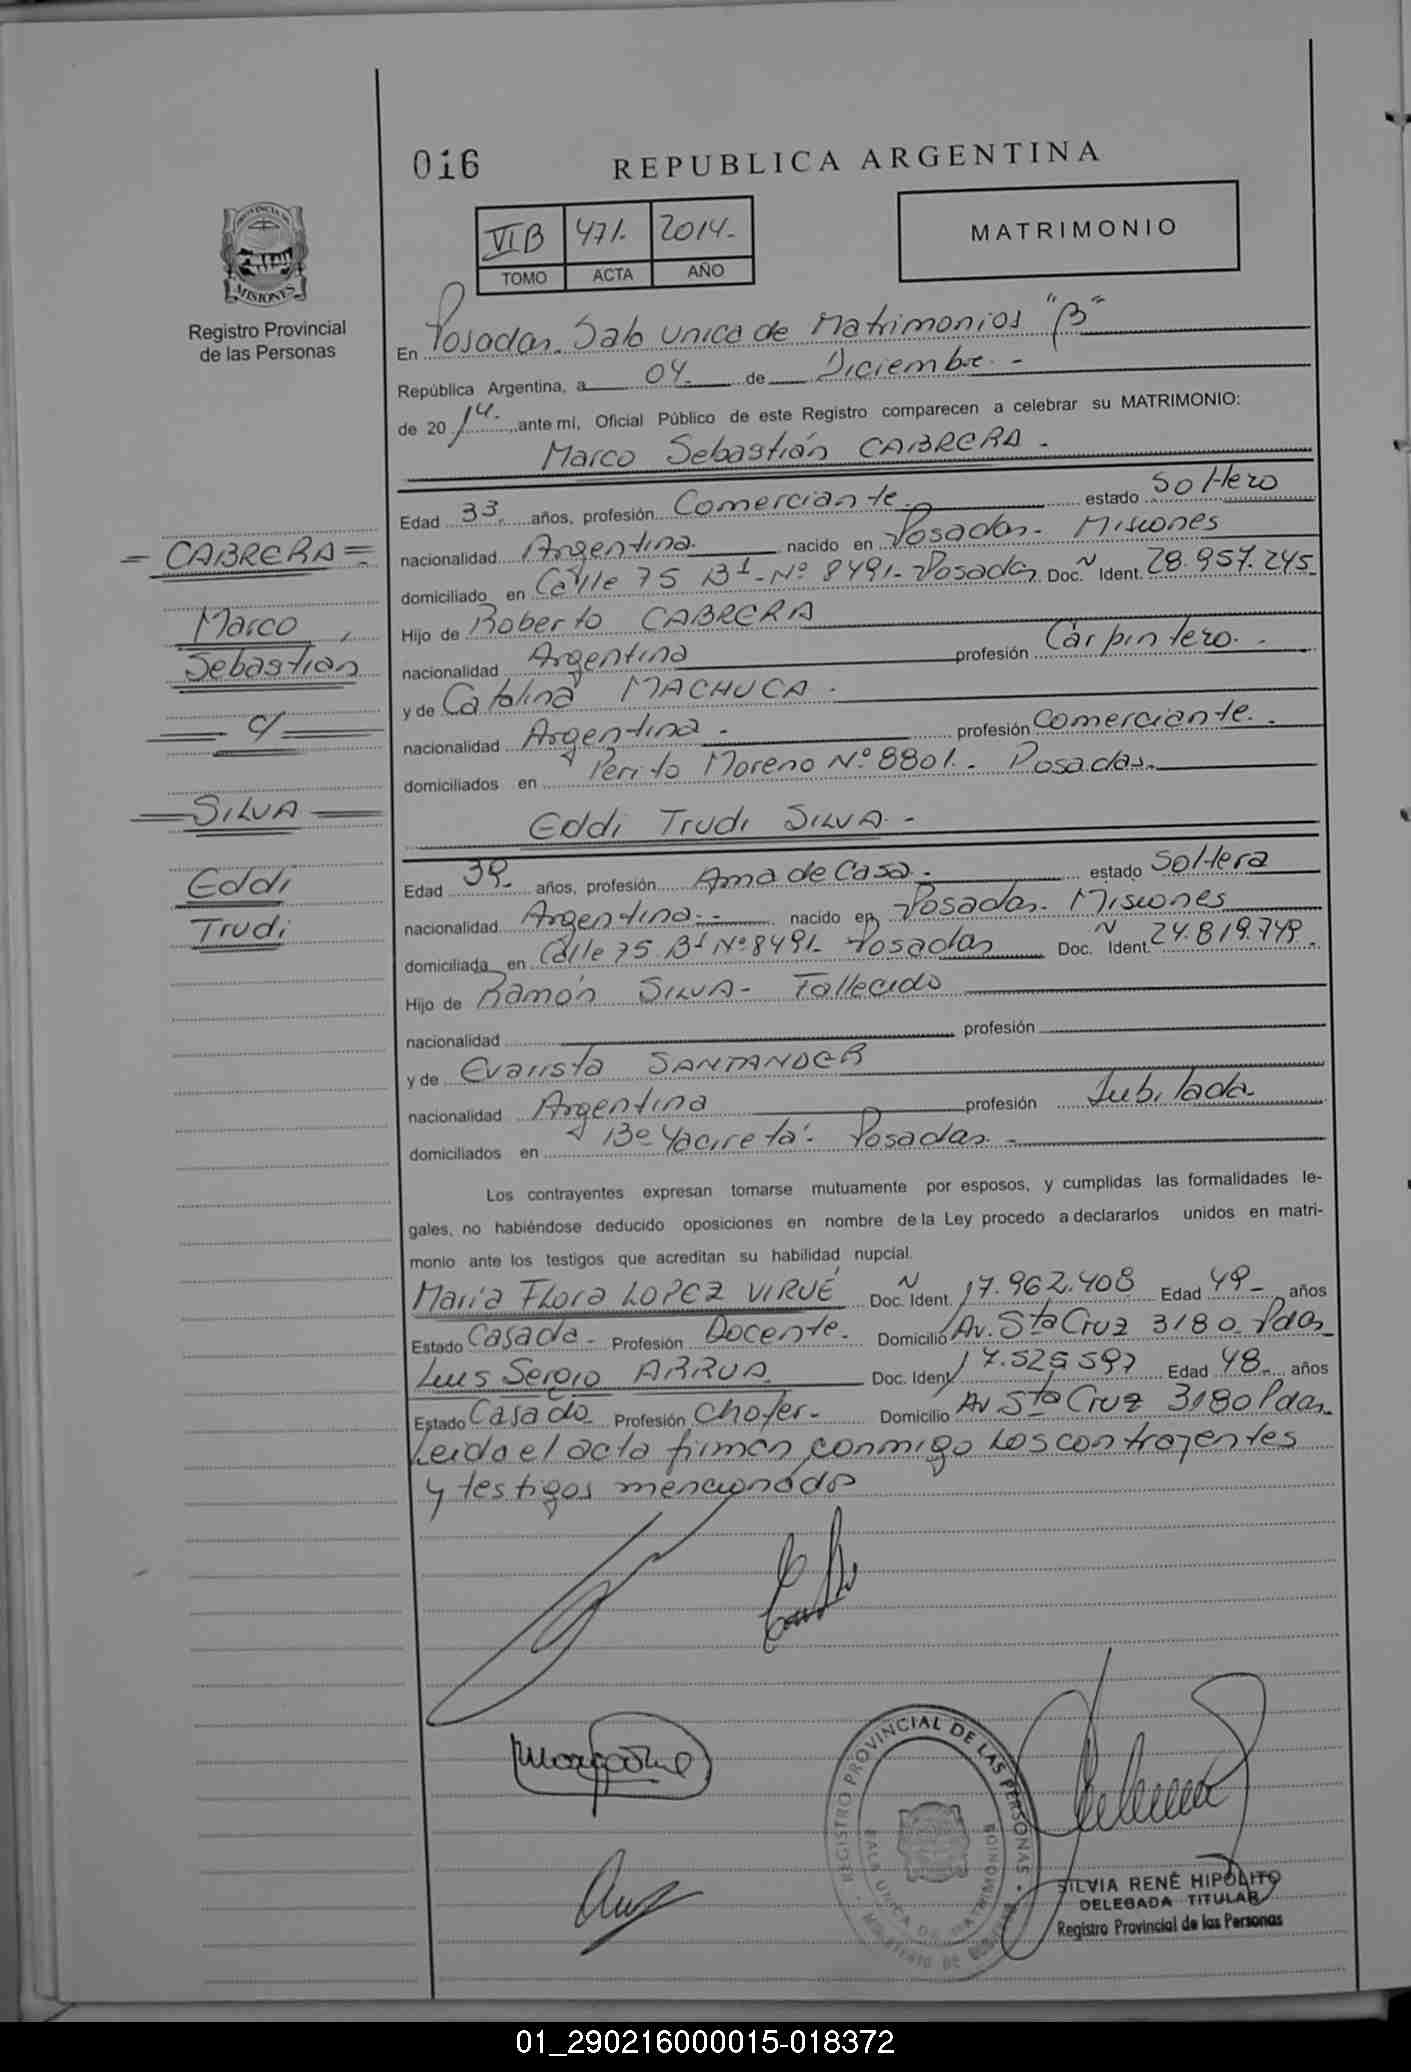 016
REPUBLICA ARGENTINA
VI B 471. 2014.-
TOMO ACTA AÑO
MATRIMONIO
PROVINCIA DE
MISIONES
Registro Provincial
de las Personas
En Posadas. Sala Unica de Matrimonios "B"
República Argentina, a 04. de Diciembre.-
de 2014. ,ante mí, Oficial Público de este Registro comparecen a celebrar su MATRIMONIO:
Marco Sebastián CABRERA.-
Edad 33. años, profesión Comerciante. estado Soltero
nacionalidad Argentina. nacido en Posadas.- Misiones
domiciliado en Calle 75 Bº-Nº 8491-Posadas. Doc. N Ident. 28.957.245
Hijo de Roberto CABRERA
nacionalidad Argentina profesión Carpintero.-
y de Catalina MACHUCA.
nacionalidad Argentina.- profesión Comerciante.-
domiciliados en Perito Moreno Nº 8801.- Posadas.
Eddi Trudi SILVA.-
Edad 39.- años, profesión Ama de Casa.- estado Soltera
nacionalidad Argentina.- nacido en Posadas.- Misiones
domiciliada en Calle 75 Bº Nº 8491- Posadas Doc. N Ident. 24.819.749.
Hijo de Ramón SILVA- Fallecido
nacionalidad profesión
y de Evarista SANTANDER
nacionalidad Argentina profesión Jubilada
domiciliados en Bº Yaciretá.- Posadas.-
Los contrayentes expresan tomarse mutuamente por esposos, y cumplidas las formalidades le-
gales, no habiéndose deducido oposiciones en nombre de la Ley procedo a declararlos unidos en matri-
monio ante los testigos que acreditan su habilidad nupcial.
María Flora LOPEZ VIRUÉ Doc. N Ident. 17.962.408 Edad 49- años
Estado Casada- Profesión Docente.- Domicilio Av. Sta Cruz 3180- Pdas.
Luis Sergio ARRUA. Doc. Ident 17.525.597 Edad 48- años
Estado Casado Profesión Chofer.- Domicilio Av Sta Cruz 3180 Pdas.
Leida el acta firman conmigo Los contrayentes
y testigos mencionados
= CABRERA =
Marco
Sebastián
c/
SILVA
Eddi
Trudi
REGISTRO PROVINCIAL DE LAS PERSONAS
SALA UNICA DE MATRIMONIOS
MINISTERIO DE GOBIERNO
SILVIA RENÉ HIPÓLITO
DELEGADA TITULAR
Registro Provincial de las Personas
01_290216000015-018372